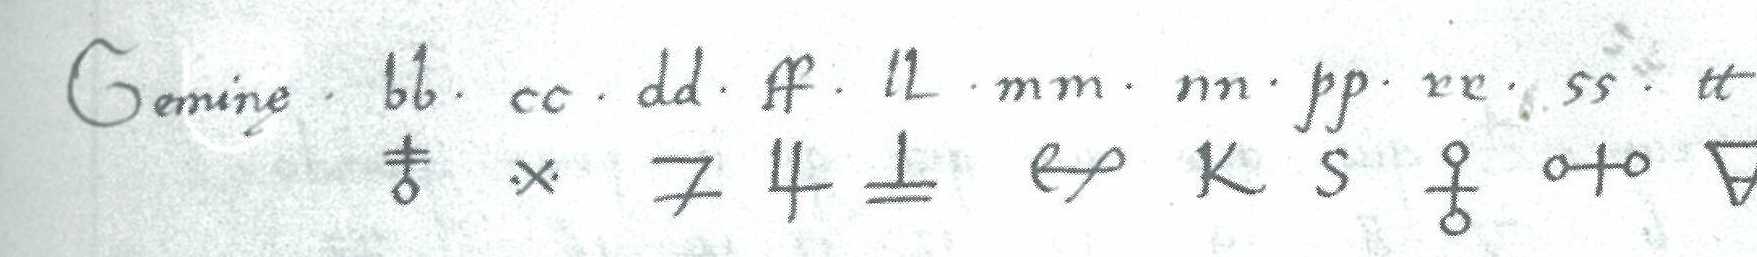 Gemine · bb · cc · dd · ff · lL · mm · nn · pp · rr · ss · tt
K S